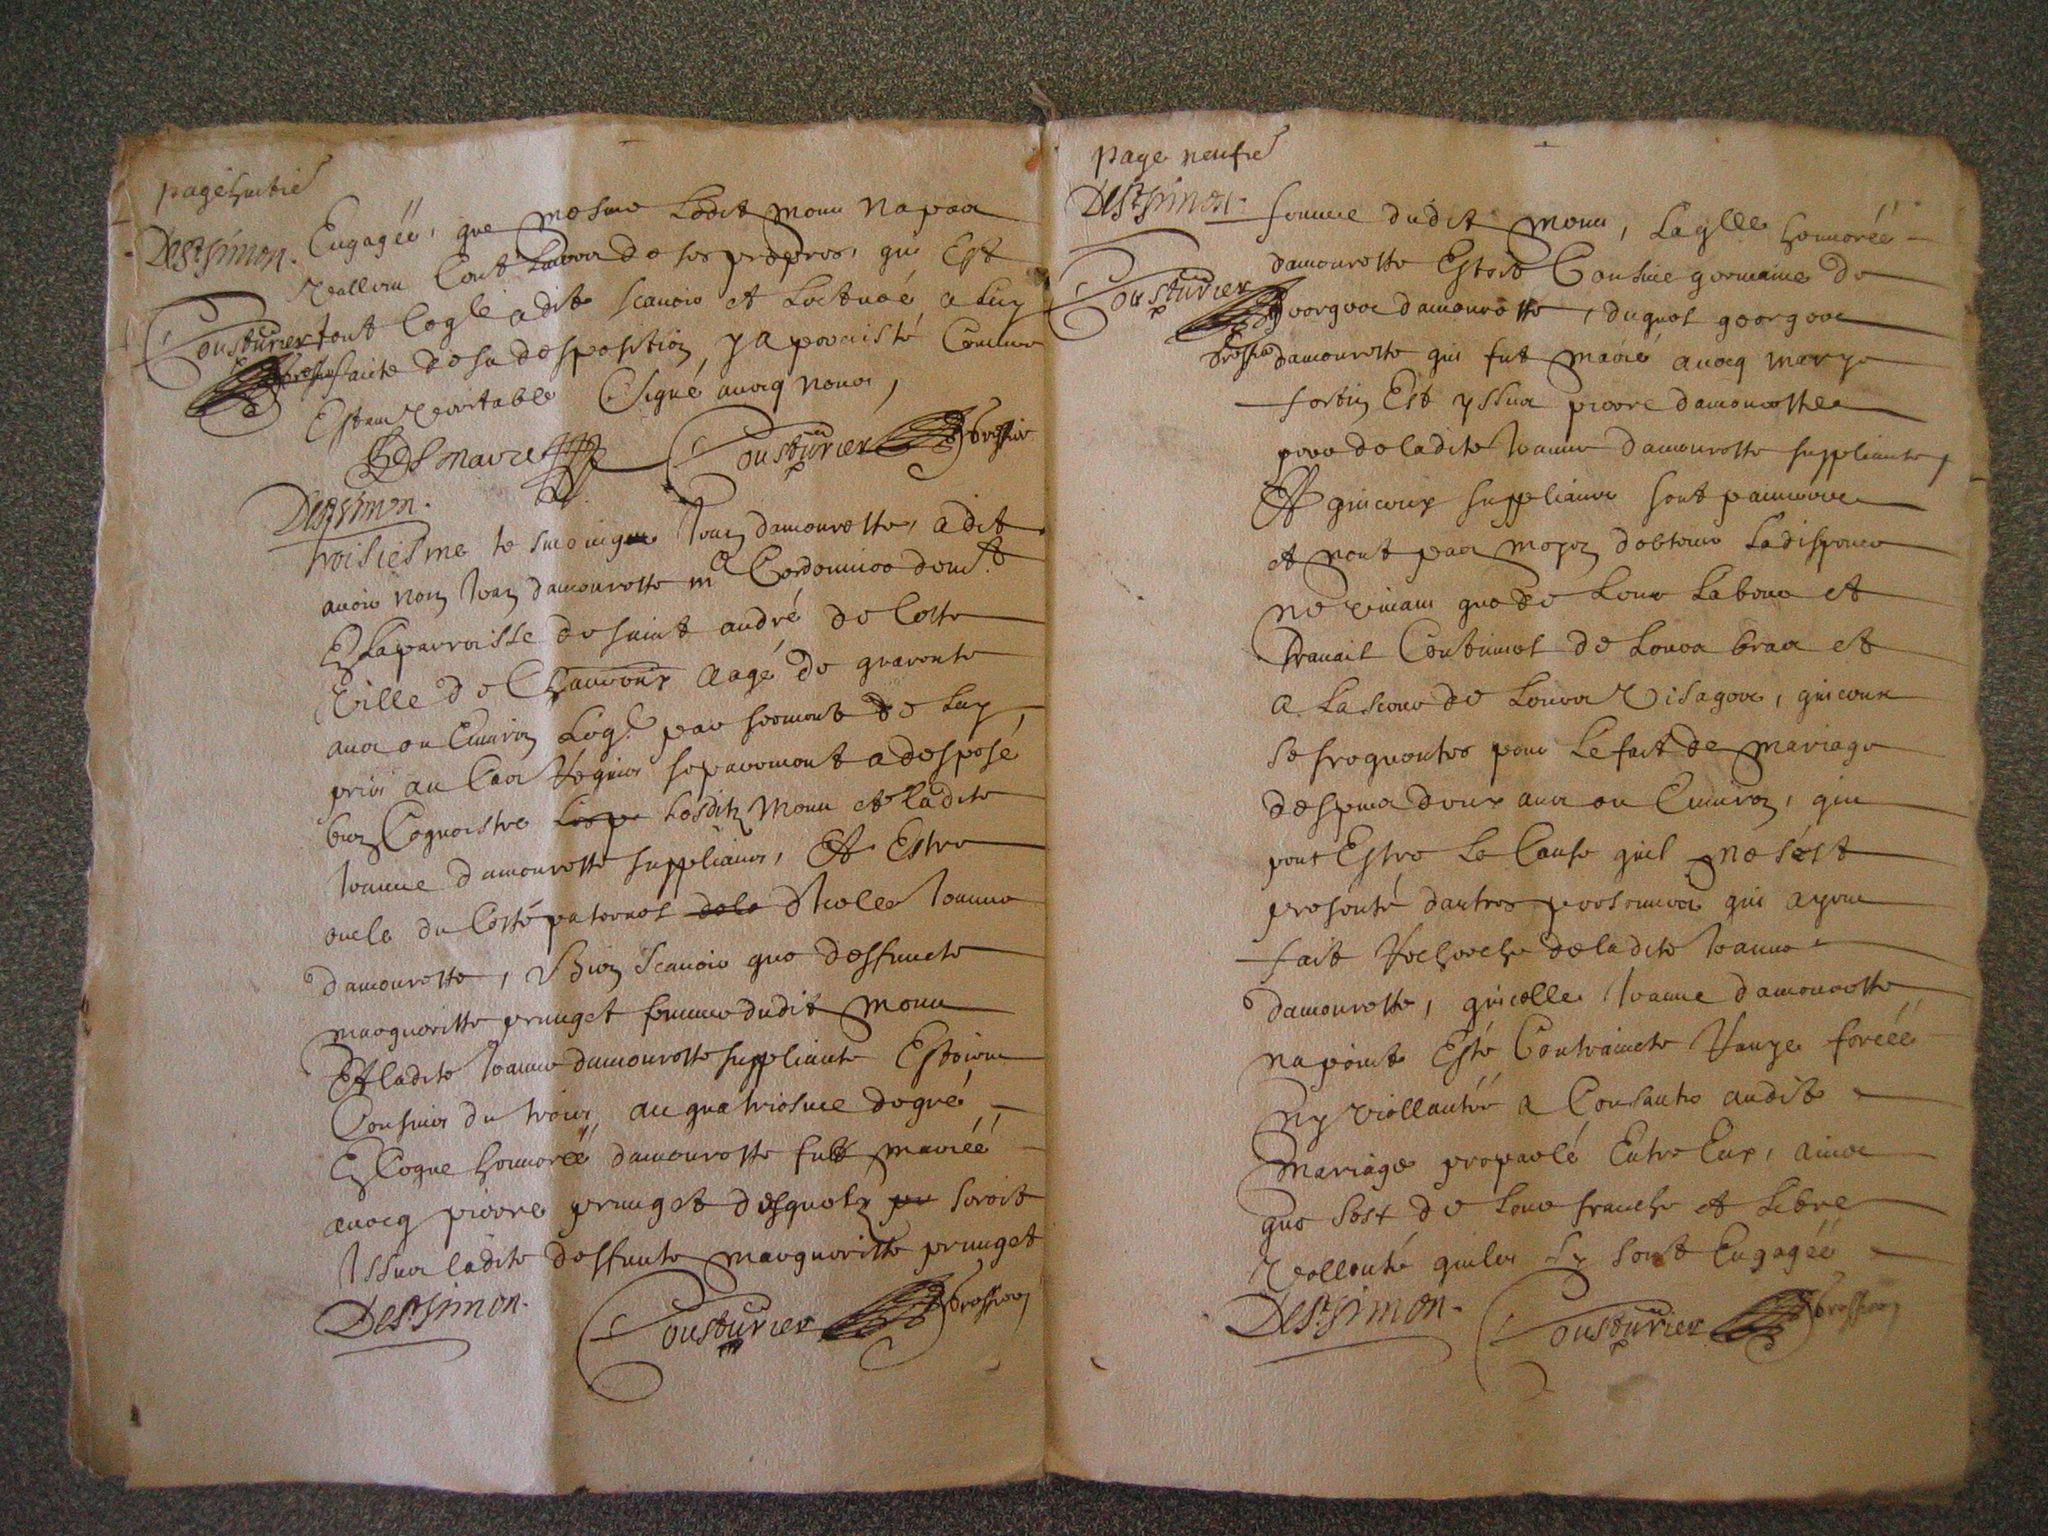 page huitie
Dest simon. Engagéé, que mesme Ledit monu na pas
vallieu Cent de ses propres, qui Est
Cousturier tout Ce qle a dit scavoir et Lecture a luy
faicte de sa desposition y a percisté Comme
Estant veritable Signé avecq nous,
Desmaire Cousturier brossier
Dest simon.
troisiesme tesmoing Jean damourette, a dit
avoir nom Jean damourette me Cordonnier demt
En La parroisse de saint andré de Cette
Ville de aagé de quarente
ans ou Environ Leql par serment de Luy
pris au Cas requis separement a desposé
bien Cognoistre Lesditz Monu et ladite
Jeanne damourette supplians, Et Estre
oncle du Costé paternel de la d'icelle Jeanne
damourette, Bien scavoir que deffuncte
margueritte pruuget femme dudit Monu
Et ladite Jeanne damourette suppliante Estoient
Cousines du trois au quatriesme degré,
En Ce que honnoréé damourette fut mariéé
avecq pierre pruuget desquelz seroit
Issue ladite deffunte margueritte pruuget
Dest simon. Cousturier brossier
page neufie
Dest simon. femme dudit monu, Laqlle honnoréé
damourette Estoit Cousine germaine de
Cousturier georges damourette, duquel georges
brossier damourette qui fut marié avecq marye
fortin Est yssue pierre damourette
pere de ladite Jeanne damourette suppliante,
Et qu'iceux supplians sont pauvres
et nont pas moyen dobtenir La dispence
ne vivans que de Leur Labeur et
travail Continuel de Leurs bras et
a La sueur de Leurs Visages, qu'iceux
se frequentes pour Le fait de mariage
despuis deux ans ou Environ, qui
peut Estre Le Cause quil ne sest
presenté dautres personnes qui ayent
fait Recherche de ladite Jeanne
damourette, quicelle Jeanne damourette
na point Esté Contraincte Ravye forcéé
ny viollantéé a Consantir audit
mariage proparlé Entre Eux, ains
que sest de Leur franche et Libre
vollonté quils sy sont Engagéé
Dest simon. Cousturier brossier